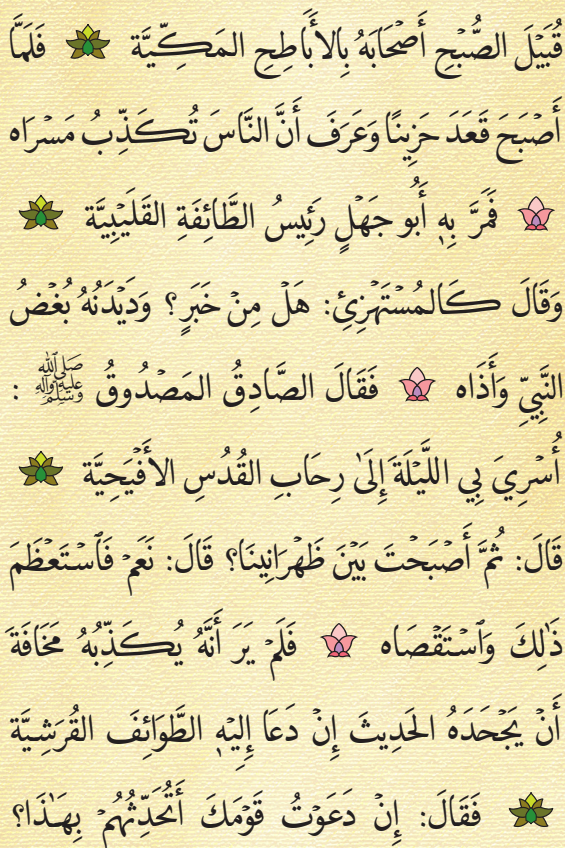 قُبَيْلَ الصُّبْحِ أَصْحَابَهُ بِالأَبَاطِحِ المَكِّيَّة فَلَمَّا
أَصْبَحَ قَعَدَ حَزِينًا وَعَرَفَ أَنَّ النَّاسَ تُكَذِّبُ مَسْرَاه
فَمَرَّ بِهِ أَبُو جَهْلٍ رَئِيسُ الطَّائِفَةِ القَلَيْبِيَّة
وَقَالَ كَالمُسْتَهْزِئِ: هَلْ مِنْ خَبَرٍ؟ وَدَيْدَنُهُ بُغْضُ
النَّبِيِّ وَأَذَاه فَقَالَ الصَّادِقُ المَصْدُوقُ صَلَّى اللهُ عَلَيْهِ وَآلِهِ وَسَلَّمَ :
أُسْرِيَ بِي اللَّيْلَةَ إِلَىٰ رِحَابِ القُدُسِ الأَفْيَحِيَّة
قَالَ: ثُمَّ أَصْبَحْتَ بَيْنَ ظَهْرَانِينَا؟ قَالَ: نَعَمْ فَٱسْتَعْظَمَ
ذَٰلِكَ وَٱسْتَقْصَاه فَلَمْ يَرَ أَنَّهُ يُكَذِّبُهُ مَخَافَةَ
أَنْ يَجْحَدَهُ الحَدِيثَ إِنْ دَعَا إِلَيْهِ الطَّوَائِفَ القُرَشِيَّة
فَقَالَ: إِنْ دَعَوْتُ قَوْمَكَ أَتُحَدِّثُهُمْ بِهَـٰذَا؟